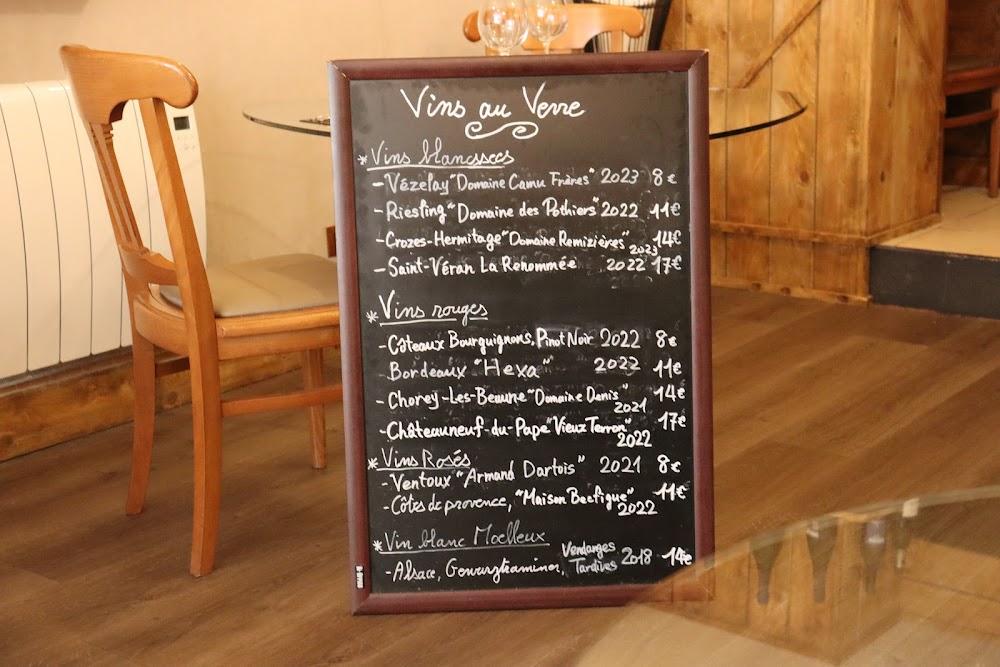 Vins au Verre
* Vins blancs secs
- Vézelay "Domaine Camu Frères" 2023 8€
- Riesling "Domaine des Pothiers" 2022 11€
- Crozes-Hermitage "Domaine Remizières" 2023 14€
- Saint-Véran La Renommée 2022 17€
* Vins rouges
- Côteaux Bourguignons, Pinot Noir 2022 8€
Bordeaux "Hexa" 2022 11€
- Chorey-Les-Beaune "Domaine Denis" 2021 14€
- Châteauneuf-du-Pape "Vieux Terron" 2022 17€
* Vins Rosés
- Ventoux "Armand Dartois" 2021 8€
- Côtes de provence, "Maison Becfigue" 2022 11€
* Vin blanc Moelleux
- Alsace, Gewurztraminer, Vendanges Tardives 2018 14€